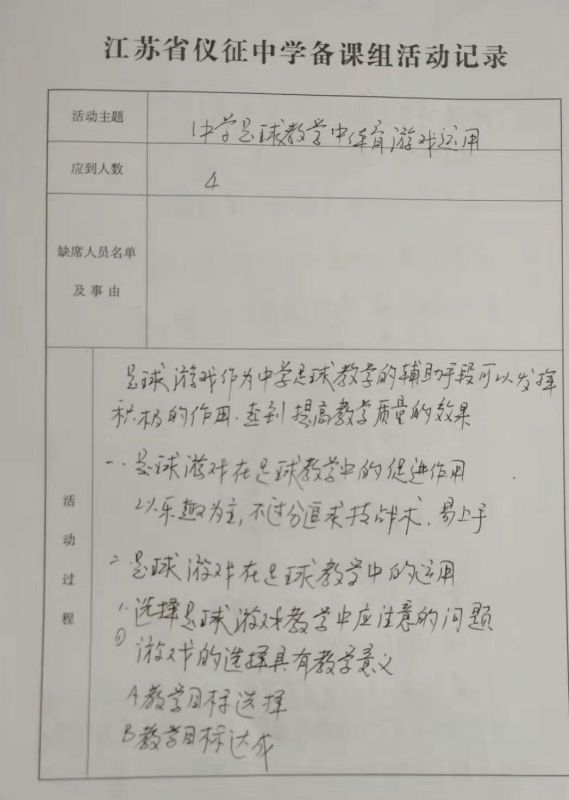 江苏省仪征中学备课组活动记录
活动主题
中学足球教学中体育游戏运用
应到人数
4
缺席人员名单
及事由
活动过程
足球游戏作为中学足球教学的辅助手段可以发挥
积极的作用.达到提高教学质量的效果
一.足球游戏在足球教学中的促进作用
以乐趣为主,不过分追求技战术,易上手
二.足球游戏在足球教学中的运用
1.选择足球游戏教学中应注意的问题
①游戏的选择具有教学意义
A教学目标选择
B教学目标达成